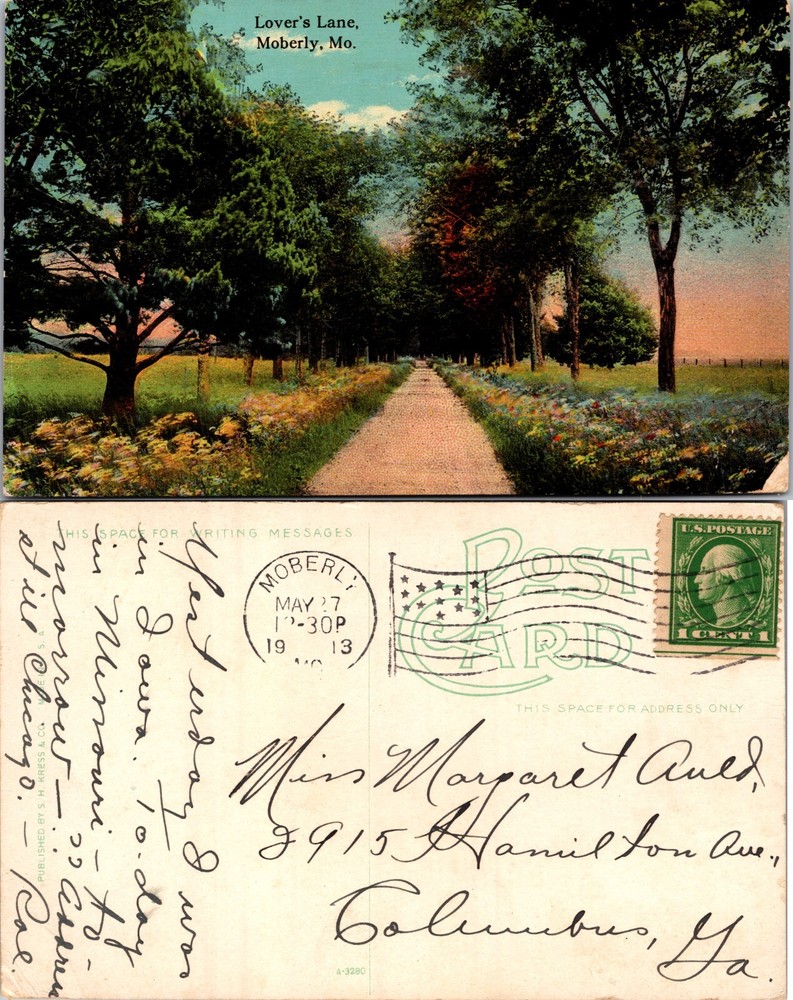 Lover's Lane,
Moberly, Mo.
THIS SPACE FOR WRITING MESSAGES
POST CARD
THIS SPACE FOR ADDRESS ONLY
MOBERLY
MAY 27
12-30P
1913
MO.
U.S. POSTAGE
1 CENT 1
Yesterday I was
in Iowa. To-day
in Missouri - to-
morrow - ?? Address
still Chicago. - Roe.
Miss Margaret Auld,
2915 Hamilton Ave.,
Columbus, Ga.
PUBLISHED BY S. H. KRESS & CO.
A-3280